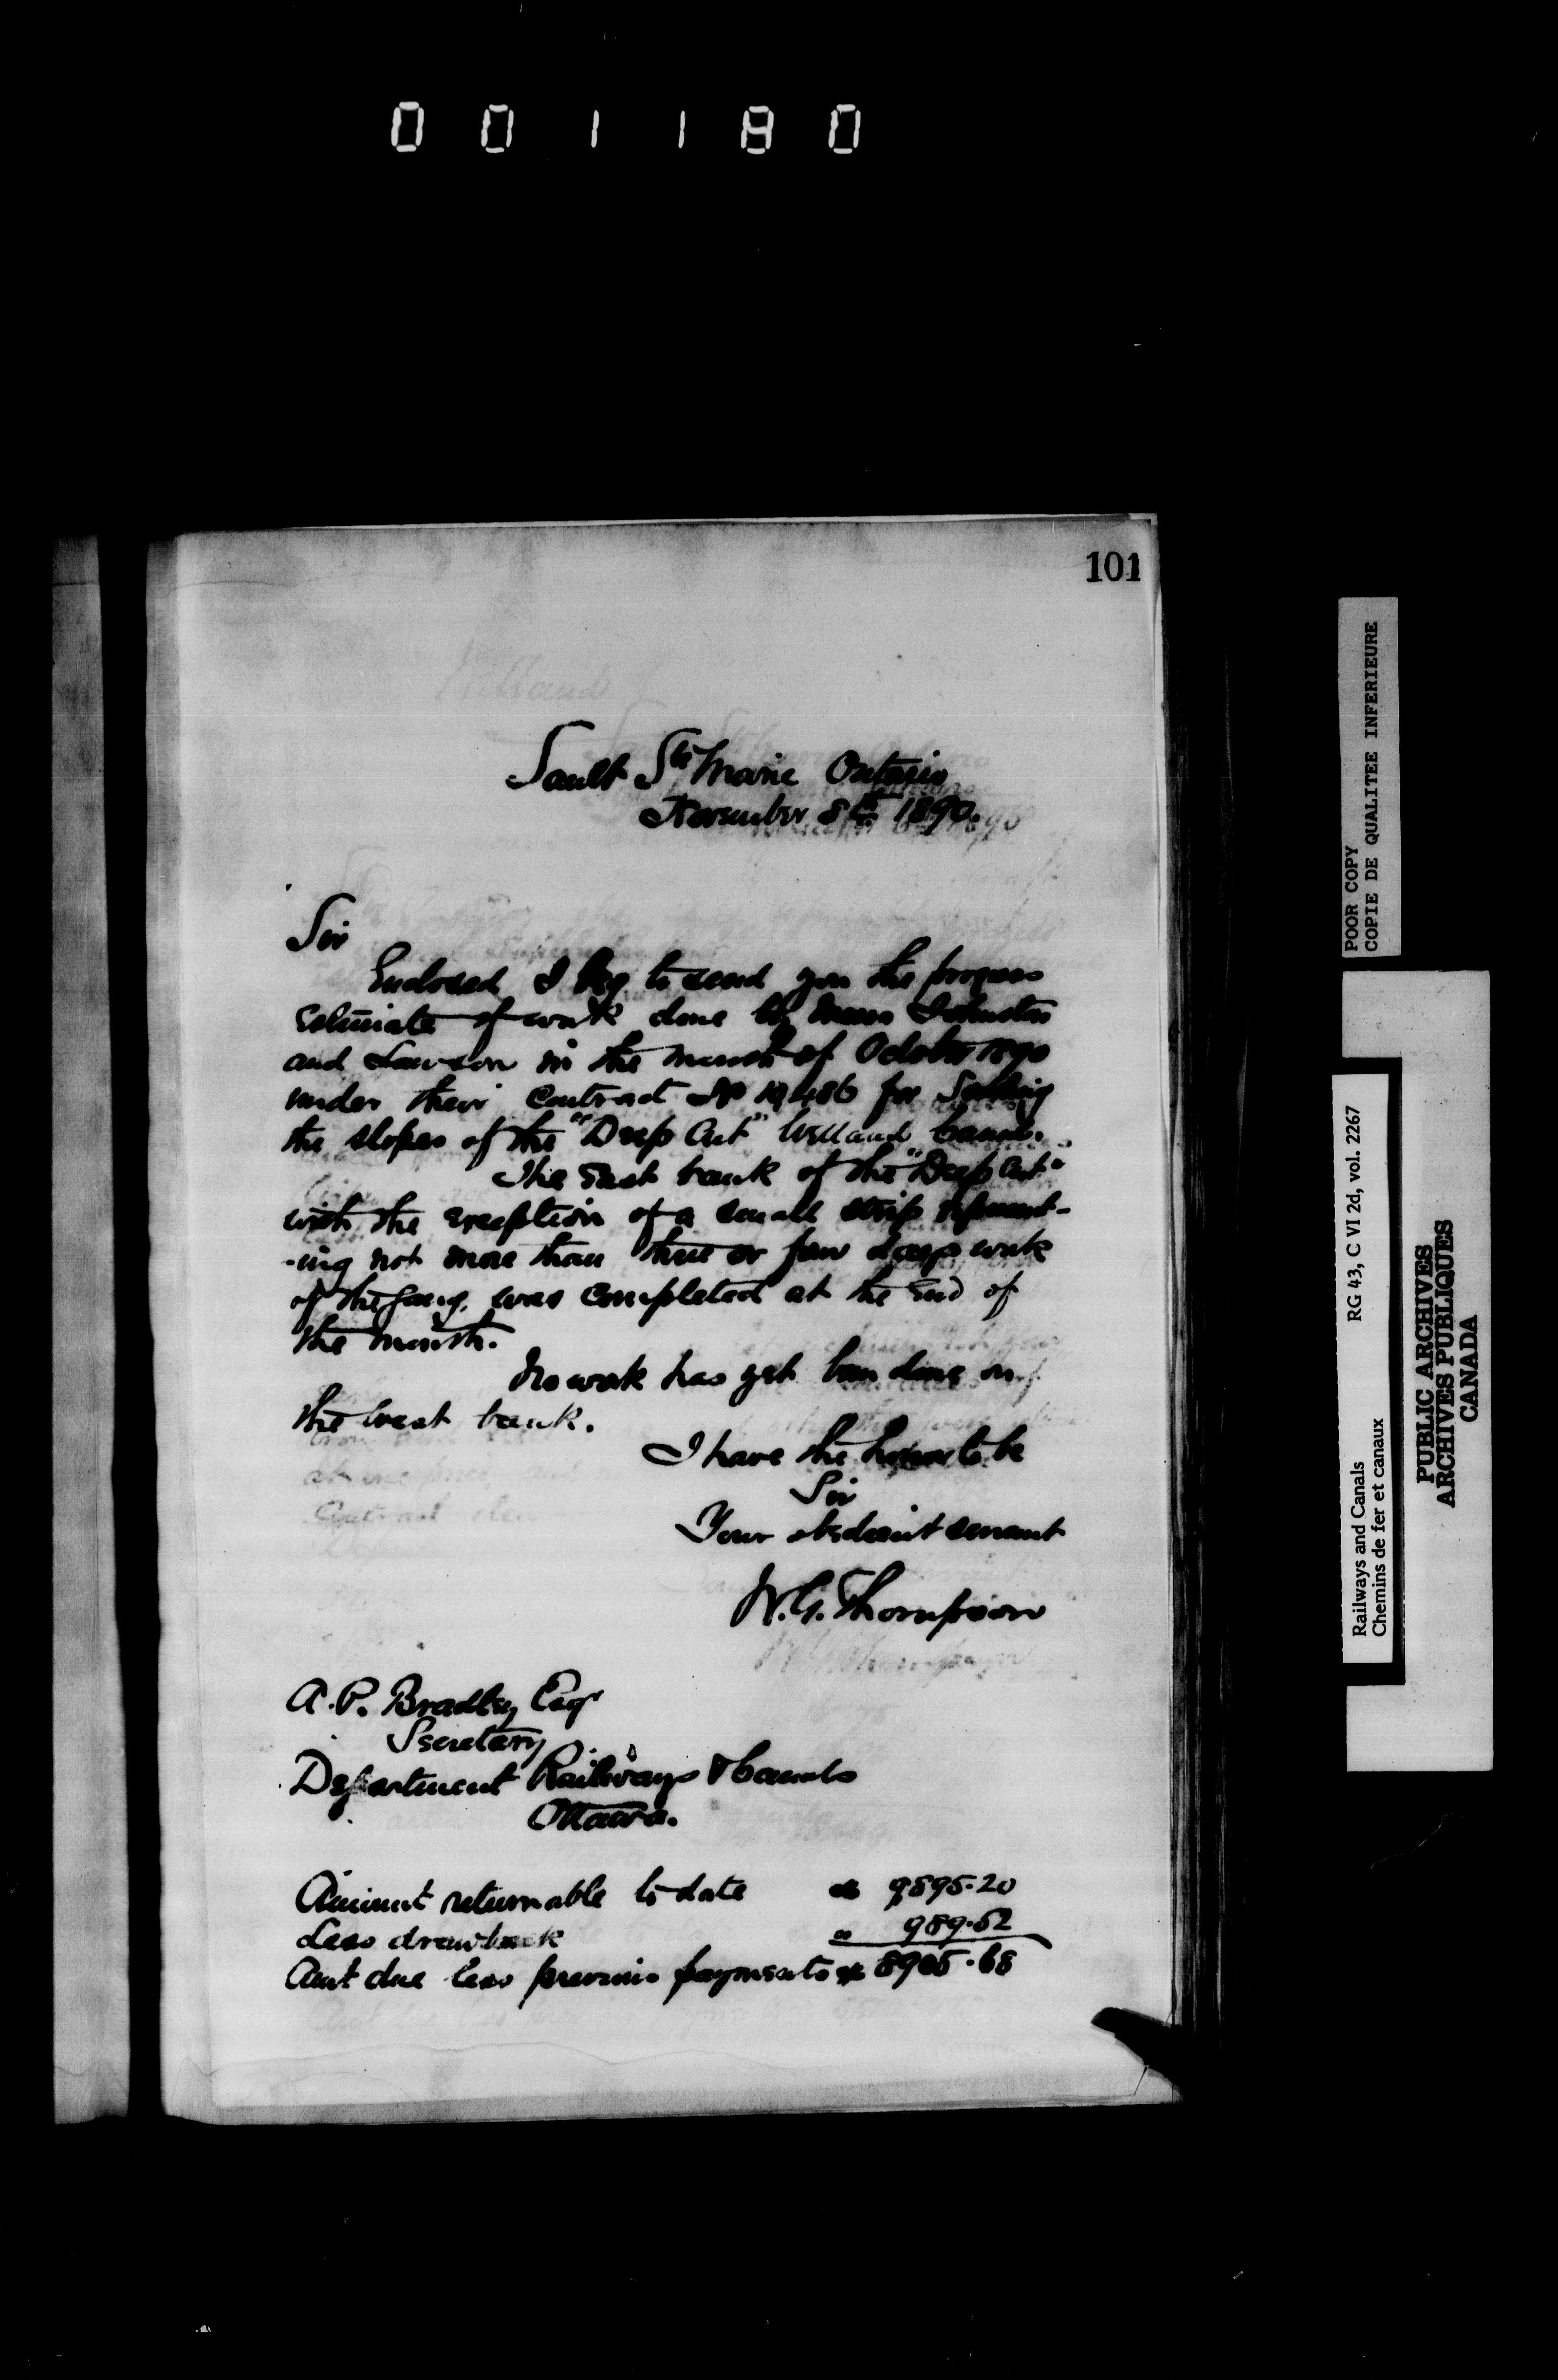 001180
101
Sault Ste Marie Ontario
November 8th 1890.
Sir
Enclosed I beg to send you the progress
Estimate of work done by Messrs Johnston
and Lawson in the month of October 1890
under their Contract No 10,486 for Sodding
the slopes of the "Deep Cut" Welland Canal.
The East bank of the "Deep Cut"
with the exception of a small strip represent-
-ing not more than three or four days work
of the gang, was completed at the End of
the month.
No work has yet been done on
the West bank.
I have the honor to be
Sir
Your obedient servant
W.G. Thompson
A.P. Bradley Esqr
Secretary
Department Railways & Canals
Ottawa.
Amount returnable to date $ 9895.20
Less drawback " 989.52
Amt due less previous payments $ 8905.68
POOR COPY
COPIE DE QUALITEE INFERIEURE
Railways and Canals RG 43, C VI 2d, vol. 2267
Chemins de fer et canaux
PUBLIC ARCHIVES
ARCHIVES PUBLIQUES
CANADA